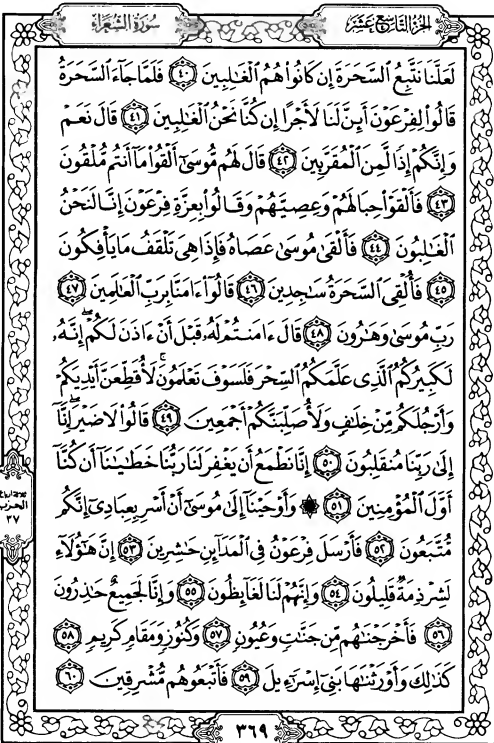 سُورَةُ الشُّعَرَاءِ
الجُزْءُ التَّاسِعَ عَشَرَ
لَعَلَّنَا نَتَّبِعُ السَّحَرَةَ إِن كَانُوا۟ هُمُ الْغَـٰلِبِينَ ٤٠ فَلَمَّا جَآءَ السَّحَرَةُ
قَالُوا۟ لِفِرْعَوْنَ أَئِنَّ لَنَا لَأَجْرًا إِن كُنَّا نَحْنُ الْغَـٰلِبِينَ ٤١ قَالَ نَعَمْ
وَإِنَّكُمْ إِذًا لَّمِنَ الْمُقَرَّبِينَ ٤٢ قَالَ لَهُم مُّوسَىٰٓ أَلْقُوا۟ مَآ أَنتُم مُّلْقُونَ
٤٣ فَأَلْقَوْا۟ حِبَالَهُمْ وَعِصِيَّهُمْ وَقَالُوا۟ بِعِزَّةِ فِرْعَوْنَ إِنَّا لَنَحْنُ
الْغَـٰلِبُونَ ٤٤ فَأَلْقَىٰ مُوسَىٰ عَصَاهُ فَإِذَا هِىَ تَلْقَفُ مَا يَأْفِكُونَ
٤٥ فَأُلْقِىَ السَّحَرَةُ سَـٰجِدِينَ ٤٦ قَالُوٓا۟ ءَامَنَّا بِرَبِّ الْعَـٰلَمِينَ ٤٧
رَبِّ مُوسَىٰ وَهَـٰرُونَ ٤٨ قَالَ ءَامَنتُمْ لَهُۥ قَبْلَ أَنْ ءَاذَنَ لَكُمْ ۖ إِنَّهُۥ
لَكَبِيرُكُمُ الَّذِى عَلَّمَكُمُ السِّحْرَ فَلَسَوْفَ تَعْلَمُونَ ۚ لَأُقَطِّعَنَّ أَيْدِيَكُمْ
وَأَرْجُلَكُم مِّنْ خِلَـٰفٍ وَلَأُصَلِّبَنَّكُمْ أَجْمَعِينَ ٤٩ قَالُوا۟ لَا ضَيْرَ ۖ إِنَّآ
إِلَىٰ رَبِّنَا مُنقَلِبُونَ ٥٠ إِنَّا نَطْمَعُ أَن يَغْفِرَ لَنَا رَبُّنَا خَطَـٰيَـٰنَآ أَن كُنَّآ
أَوَّلَ الْمُؤْمِنِينَ ٥١ ۞ وَأَوْحَيْنَآ إِلَىٰ مُوسَىٰٓ أَنْ أَسْرِ بِعِبَادِىٓ إِنَّكُم
مُّتَّبَعُونَ ٥٢ فَأَرْسَلَ فِرْعَوْنُ فِى الْمَدَآئِنِ حَـٰشِرِينَ ٥٣ إِنَّ هَـٰٓؤُلَآءِ
لَشِرْذِمَةٌ قَلِيلُونَ ٥٤ وَإِنَّهُمْ لَنَا لَغَآئِظُونَ ٥٥ وَإِنَّا لَجَمِيعٌ حَـٰذِرُونَ
٥٦ فَأَخْرَجْنَـٰهُم مِّن جَنَّـٰتٍ وَعُيُونٍ ٥٧ وَكُنُوزٍ وَمَقَامٍ كَرِيمٍ ٥٨
كَذَٰلِكَ وَأَوْرَثْنَـٰهَا بَنِىٓ إِسْرَٰٓءِيلَ ٥٩ فَأَتْبَعُوهُم مُّشْرِقِينَ ٦٠
الحزب
٣٧
٣٦٩